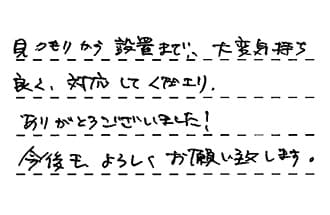 見つもりから設置まで、大変気持ち
良く、対応して くださり、
ありがとうございました!
今後も よろしく お願い致します。